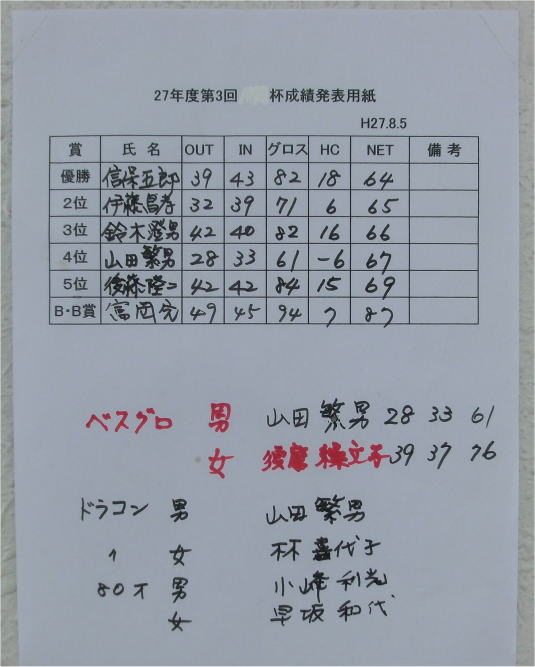 27年度第3回 杯成績発表用紙
H27.8.5
賞 氏名 OUT IN グロス HC NET 備考
優勝 信保五郎 39 43 82 18 64
2位 伊藤昌孝 32 39 71 6 65
3位 鈴木澄男 42 40 82 16 66
4位 山田繁男 28 33 61 -6 67
5位 後藤隆二 42 42 84 15 69
B・B賞 富岡 49 45 94 7 87
ベスグロ 男 山田繁男 28 33 61
女 須磨 39 37 76
ドラコン 男 山田繁男
女 林 喜代子
80才 男 小峰利光
女 早坂和代